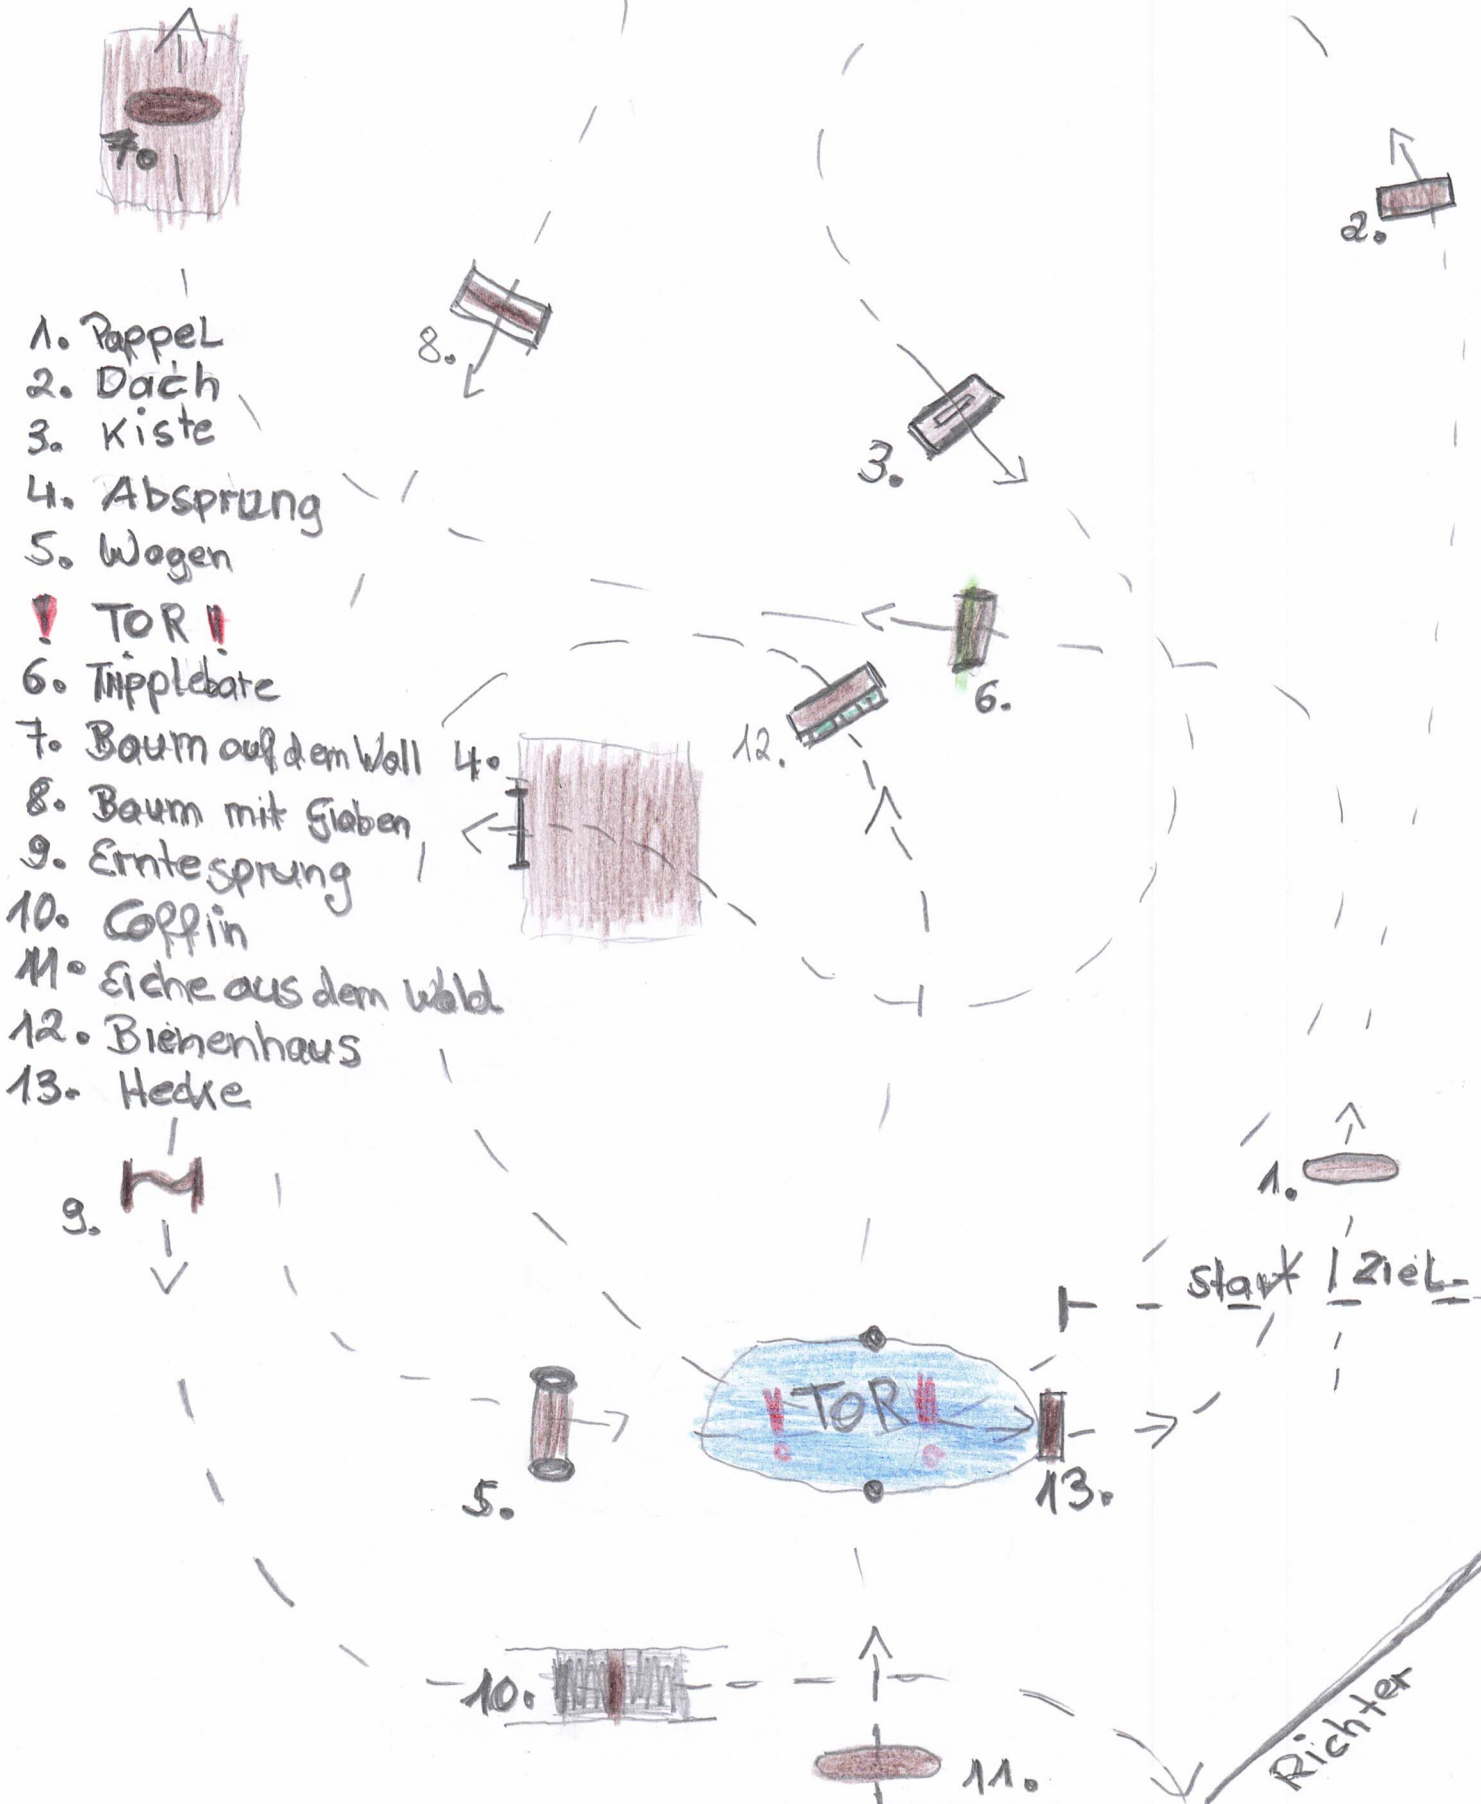 7.
2.
8.
3.
1. Pappel
2. Dach
3. Kiste
4. Absprung
5. Wagen
! TOR !!
6. Tripplebare
7. Baum auf dem Wall
8. Baum mit Graben
9. Erntesprung
10. Coffin
11. Eiche aus dem Wald
12. Bienenhaus
13. Hecke
6.
12.
4.
1.
9.
Start / Ziel
! TOR !!
5.
13.
10.
11.
Richter